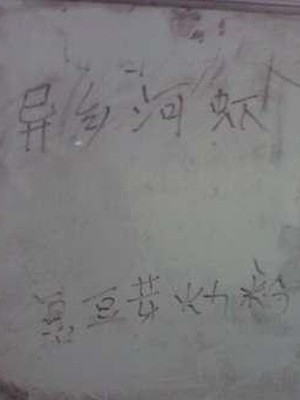 异乡河虾
黄豆芽炒粉